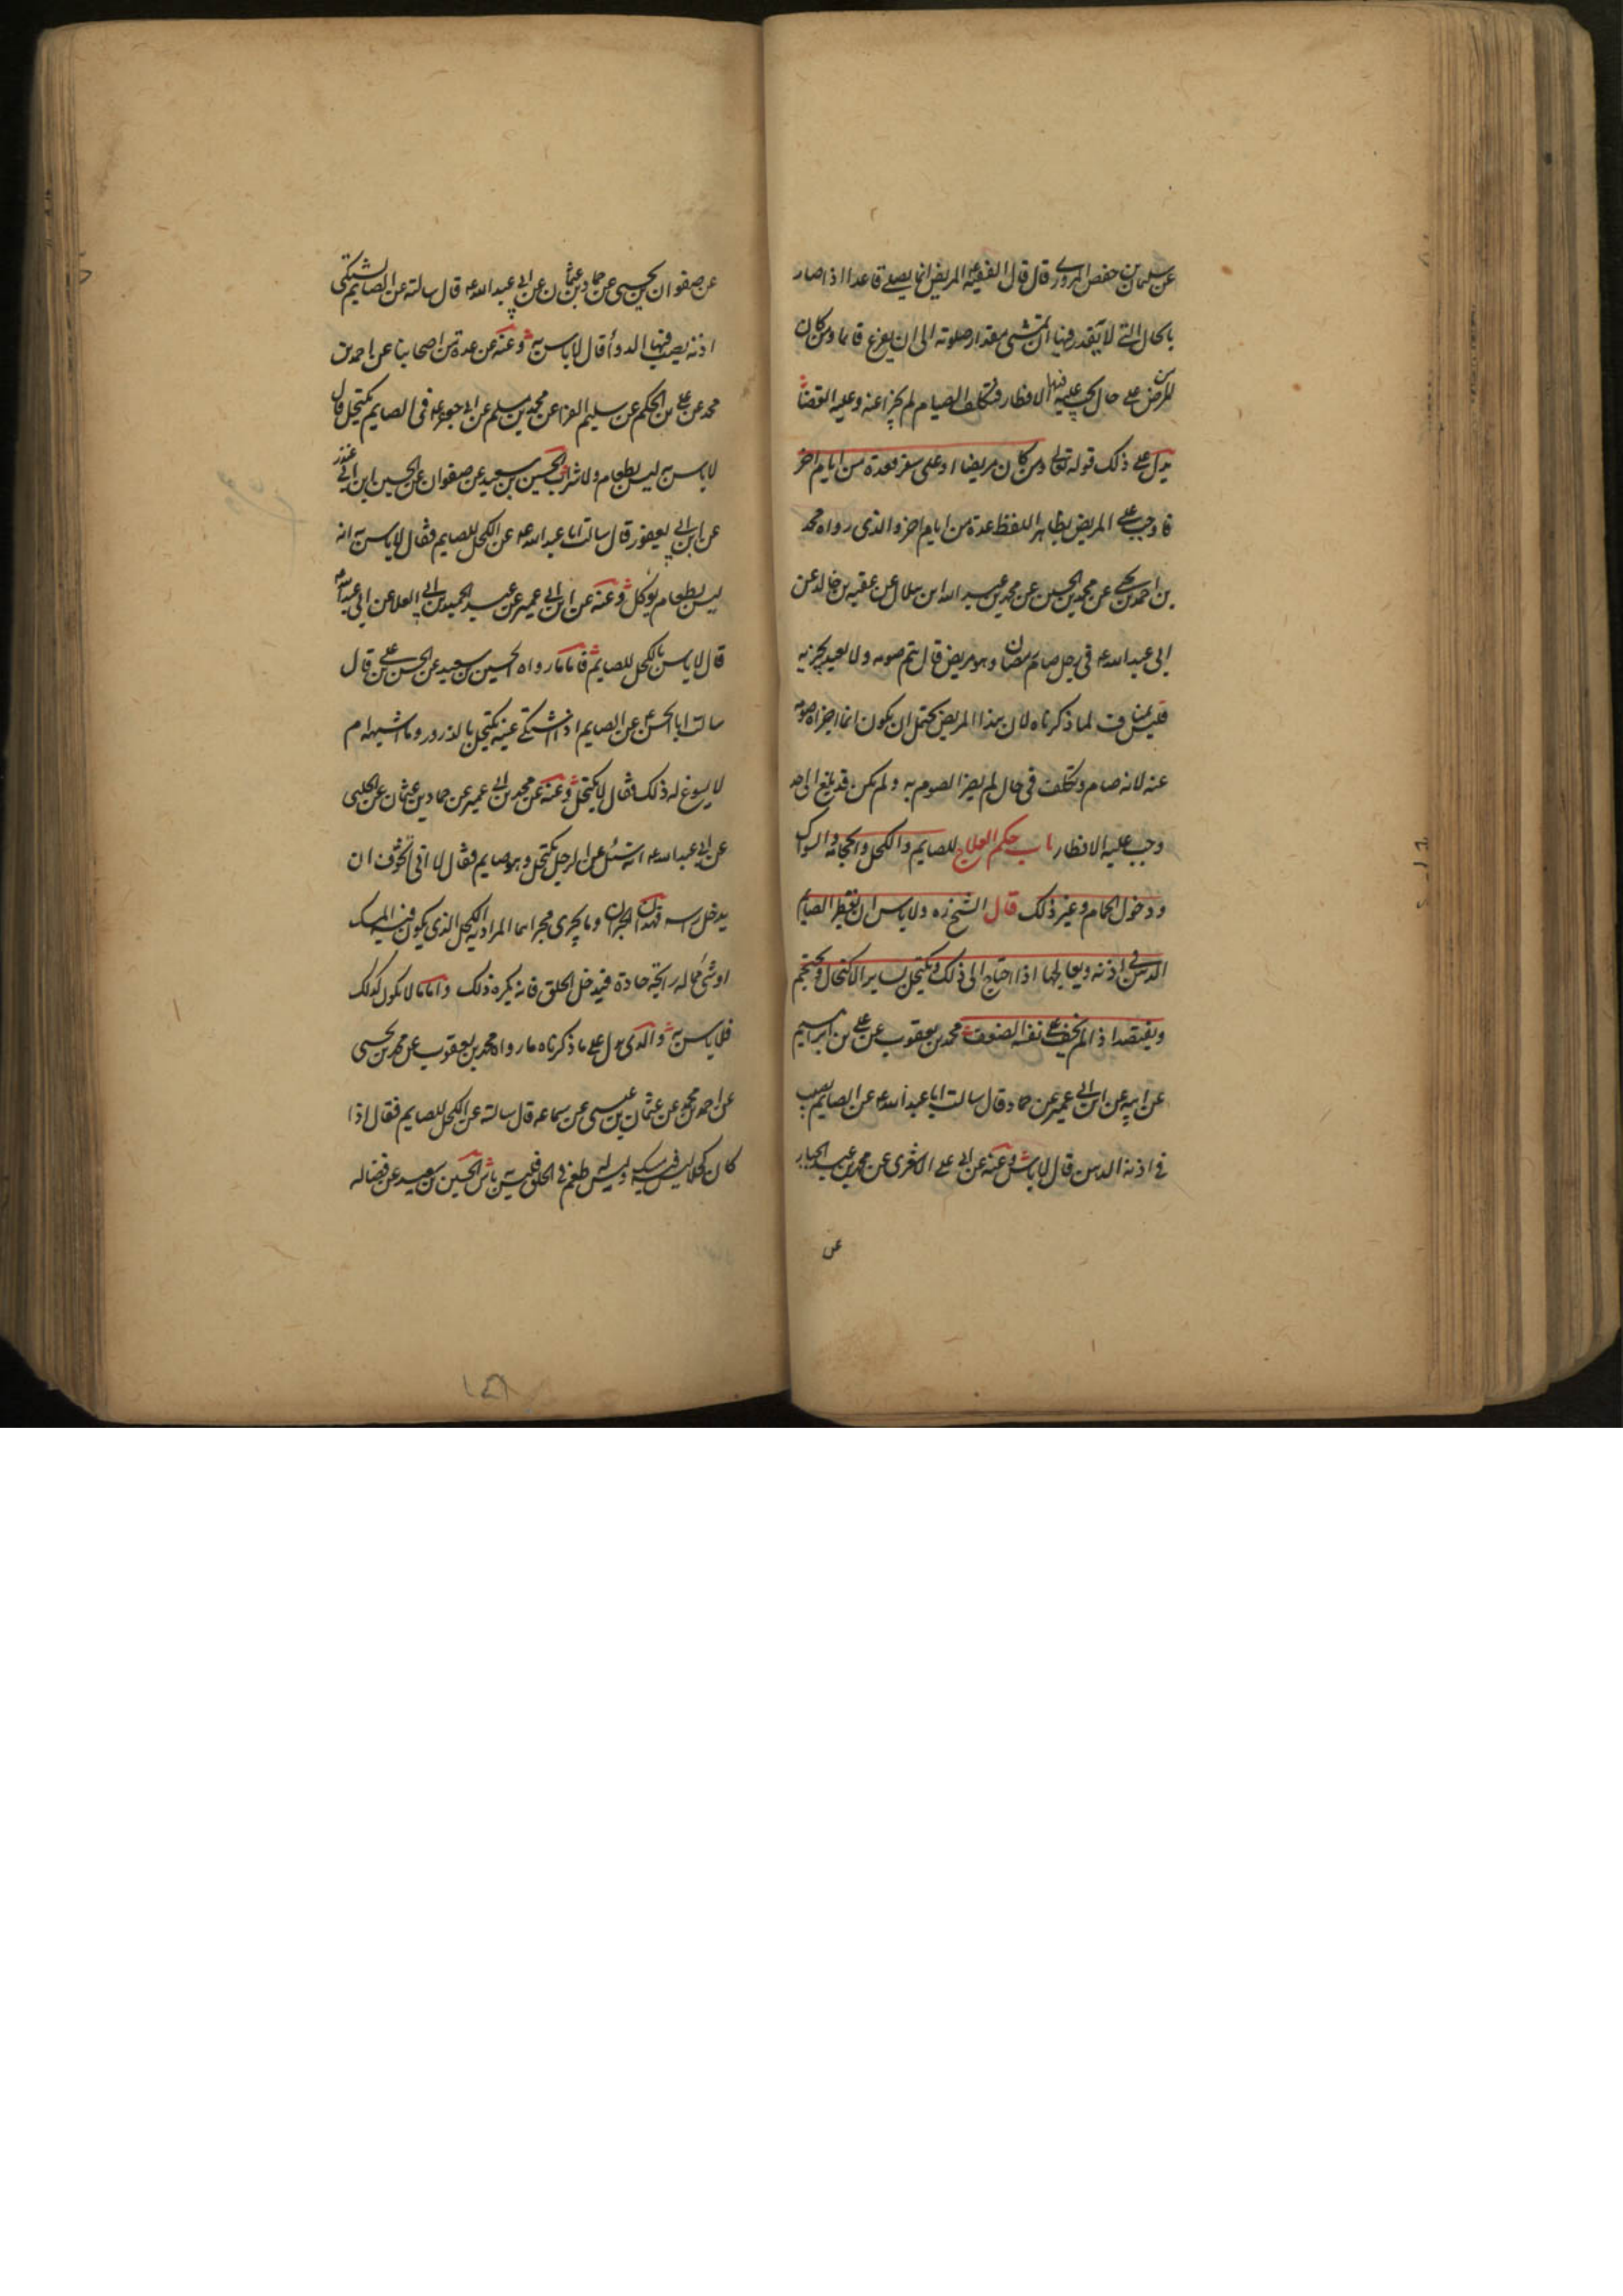 عن سليمان بن حفص المروزى قال قال الفقيه ع المريض انما يصلى قاعدا اذا صار
بالحال التى لا يقدر فيها ان يمشى مقدار صلوته الى ان يفرغ قائما ومن كان
من المرض على حال يجب عليه فيها الافطار فتكلف الصيام لم يجز عنه وعليه القضاء
يدل على ذلك قوله تعالى ومن كان مريضا او على سفر فعدة من ايام اخر
فاوجب على المريض بظاهر اللفظ عدة من ايام اخر والذى رواه محمد
بن احمد بن يحيى عن محمد بن الحسين عن محمد بن عبد الله ابن هلال عن عقبه بن خالد عن
ابى عبد الله ع فى رجل صام رمضان وهو مريض قال يتم صومه ولا يعيد يجزيه
فليس بمناف لما ذكرناه لان هذا المريض يحتمل ان يكون انما اجزاه صومه
عنه لانه صام وتكلف فى حال لم يضر الصوم به ولم يكن قد بلغ الى حد
وجب عليه الافطار باب حكم العلاج للصايم والكحل والحجامة والسواك
ودخول الحمام وغير ذلك قال الشيخ ره ولا باس ان يقطر الصايم
الدهن فى اذنه ويعالجها اذا احتاج الى ذلك ويكتحل بساير الاكحال ويحتجم
ويفتصد اذا لم يخف على نفسه الضعف محمد بن يعقوب عن على بن ابراهيم
عن ابيه عن ابن ابى عمير عن حماد قال سالت ابا عبد الله ع عن الصايم يصب
فى اذنه الدهن قال لا باس وعنه عن ابى على الاشعرى عن محمد بن عبد الجبار
عن
عن صفوان بن يحيى عن حماد بن عثمان عن ابى عبد الله ع قال سالته عن الصايم يشتكى
اذنه يصب فيها الدواء قال لا باس به وعنه عن عدة من اصحابنا عن احمد بن
محمد عن على بن الحكم عن سليم الفرا عن محمد بن مسلم عن ابى جعفر ع فى الصايم يكتحل قال
لا باس به ليس بطعام ولا شراب الحسين بن سعيد عن صفوان عن الحسين ابن ابى غندر
عن ابن ابى يعفور قال سالت ابا عبد الله ع عن الكحل للصايم فقال لا باس به انه
ليس بطعام يوكل وعنه عن ابن ابى عمير عن عبد الحميد بن ابى العلا عن ابى عبد الله ع
قال لا باس بالكحل للصايم فاما ما رواه الحسين بن سعيد عن الحسن بن على قال
سالت ابا الحسن ع عن الصايم اذا اشتكى عينه يكتحل بالذرور وما اشبهه ام
لا يسوغ له ذلك فقال لا يكتحل وعنه عن محمد بن ابى عمير عن حماد بن عثمان عن الحلبى
عن ابى عبد الله ع انه سئل عن الرجل يكتحل وهو صايم فقال لا انى اتخوف ان
يدخل راسه فهذان الخبران وما يجرى مجراهما المراد به الكحل الذى يكون فيه المسك
او شى مما له رايحة حادة فيدخل الحلق فانه يكره ذلك واما ما لا يكون كذلك
فلا باس به والذى يدل على ما ذكرناه ما رواه محمد بن يعقوب عن محمد بن يحيى
عن احمد بن محمد عن عثمان بن عيسى عن سماعه قال سالته عن الكحل للصايم فقال اذا
كان كحلا ليس فيه مسك وليس له طعم فى الحلق فليس به باس الحسين بن سعيد عن فضاله